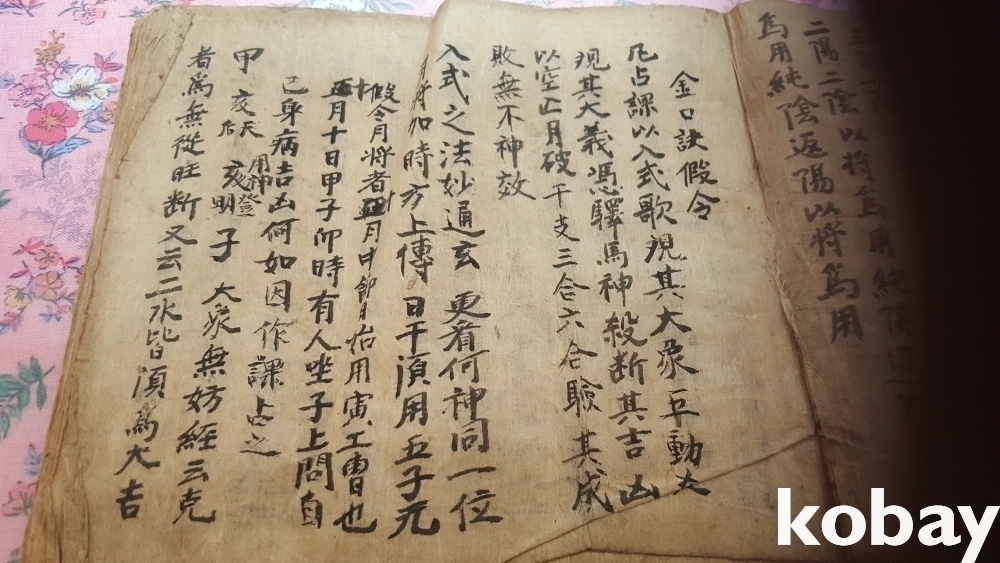 二陽二陰以將爲用純陰
爲用純陰返陽以將爲用
金口訣假令
凡占課以入式歌現其大象
現其大義憑驛馬神殺斷其吉凶
以空亡月破干支三合六合驗其成
敗無不神效
入式之法妙通玄更看何神同一位
將加時方上傳日干須用五子元
假令月將者月中節後始用寅工曹也
月十日甲子卯時有人坐子上問自
己身病吉凶何如因作課占之
甲
亥天后
亥登明
用神
子
大象無妨經云克
者爲無從旺斷又云二水皆須爲大吉
kobay